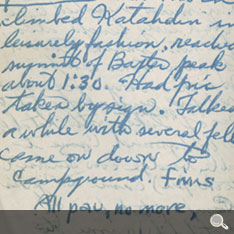 climbed Katahdin in
leisurely fashion, reached
summit of Baxter peak
about 1:30. Had pic
taken by sign. Talked
a while with several fell
came on down to
campground. Finis
All pau, no more,